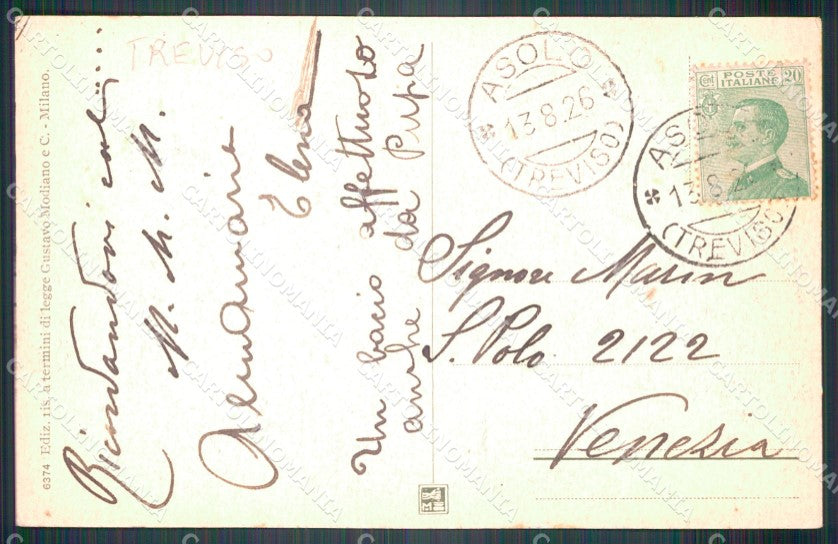 TREVISO
6374 Ediz. ris. a termini di legge Gustavo Modiano e C. - Milano.
Ricordandovi
M. M. M.
Annamaria
Elena
Un bacio affettuoso
anche da Pupa
ASOLO
13.8.26
(TREVISO)
POSTE
ITALIANE
CENT 20
ASOLO
13.8.26
(TREVISO)
Signore Marin
S. Polo 2122
Venezia
CARTOLINOMANIA